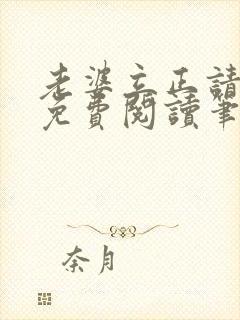 老婆立正請
免費閱讀筆
奈月